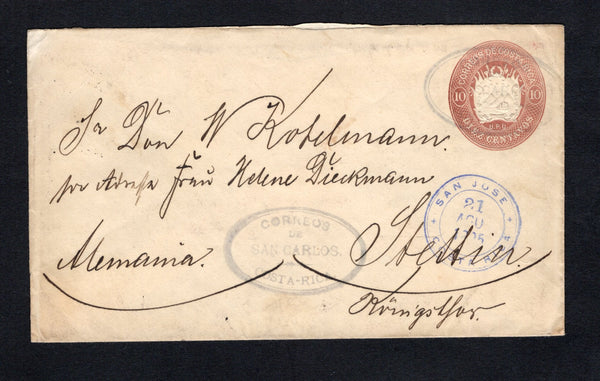 CORREOS DE COSTA RICA
10 10
U.P.U.
DIEZ CENTAVOS
Sr Don W Kobelmann.
per Adresse Frau Helene Dieckmann
SAN JOSE
21
AGO
COSTA RICA
CORREOS
DE
SAN CARLOS.
COSTA-RICA
Alemania. Stettin.
Königsthor.